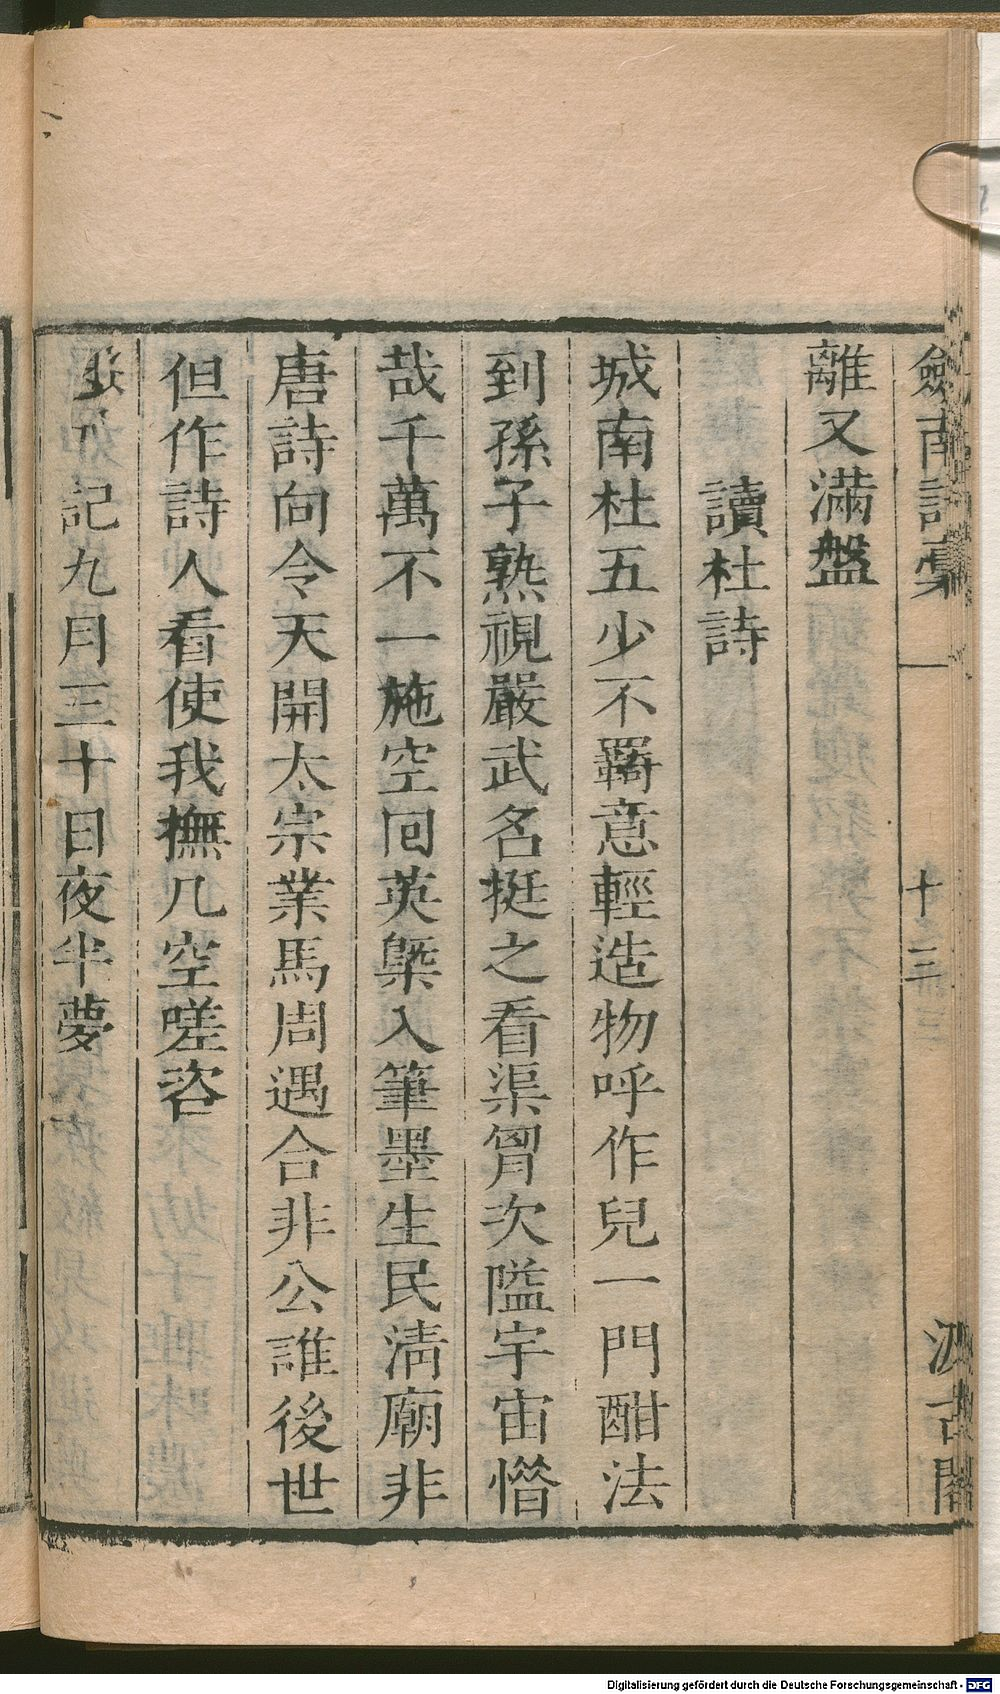 劒南詩稾
十三
汲古閣
離又滿盤
讀杜詩
城南杜五少不羈意輕造物呼作兒一門酣法
到孫子熟視嚴武名挺之看渠胷次隘宇宙惜
哉千萬不一施空回英槩入筆墨生民清廟非
唐詩向令天開太宗業馬周遇合非公誰後世
但作詩人看使我撫几空嗟咨
記九月三十日夜半夢
Digitalisierung gefördert durch die Deutsche Forschungsgemeinschaft - DFG